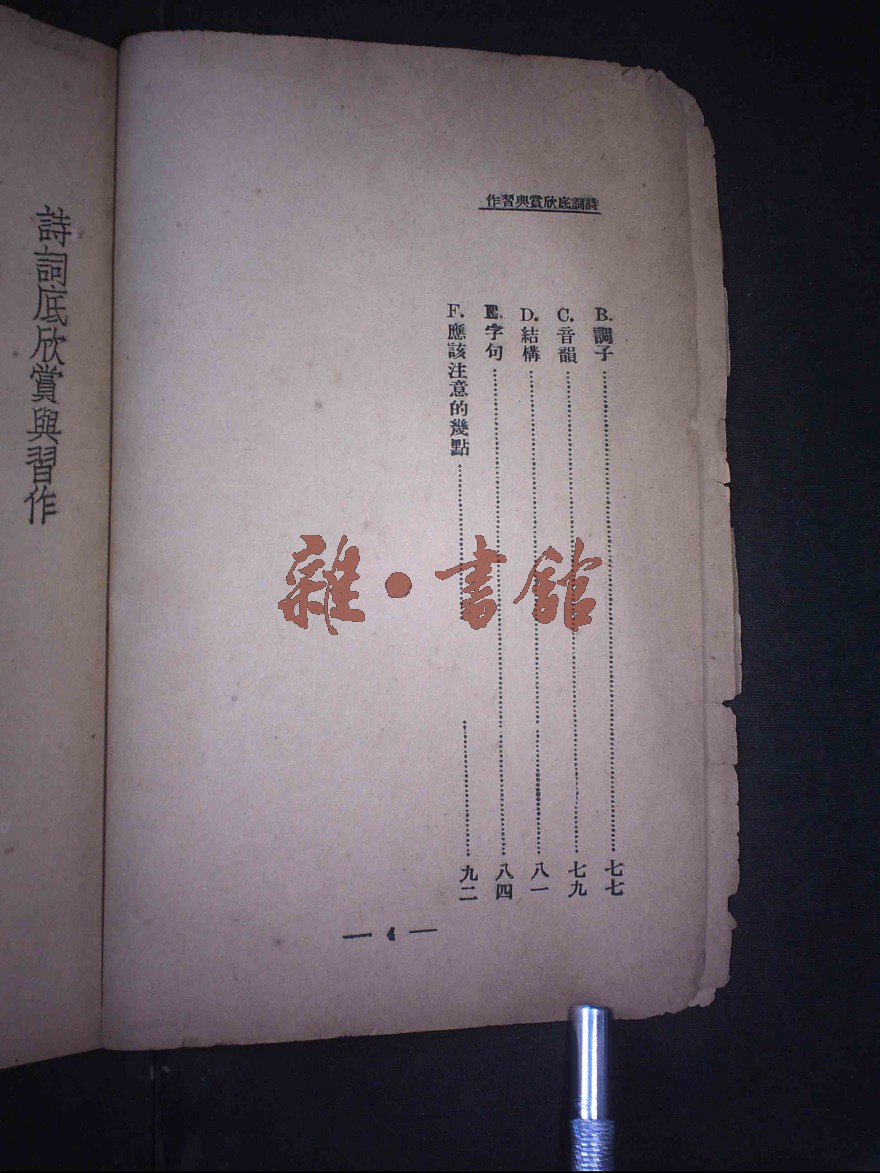 作習與賞欣底詞詩
B.調子……七七
C.音韻……七九
D.結構……八一
E.字句……八四
F.應該注意的幾點……九二
— 4 —
詩詞底欣賞與習作
雜·書館